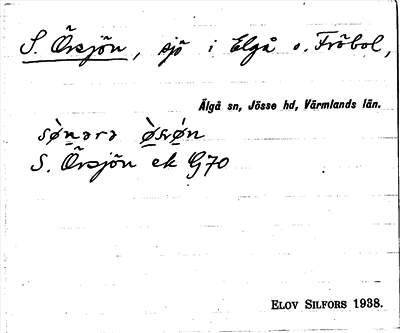 S. Örsjön, sjö i Elgå o. Fröbol,
Älgå sn, Jösse hd, Värmlands län.
S. Örsjön ek G70
ELOV SILFORS 1938.